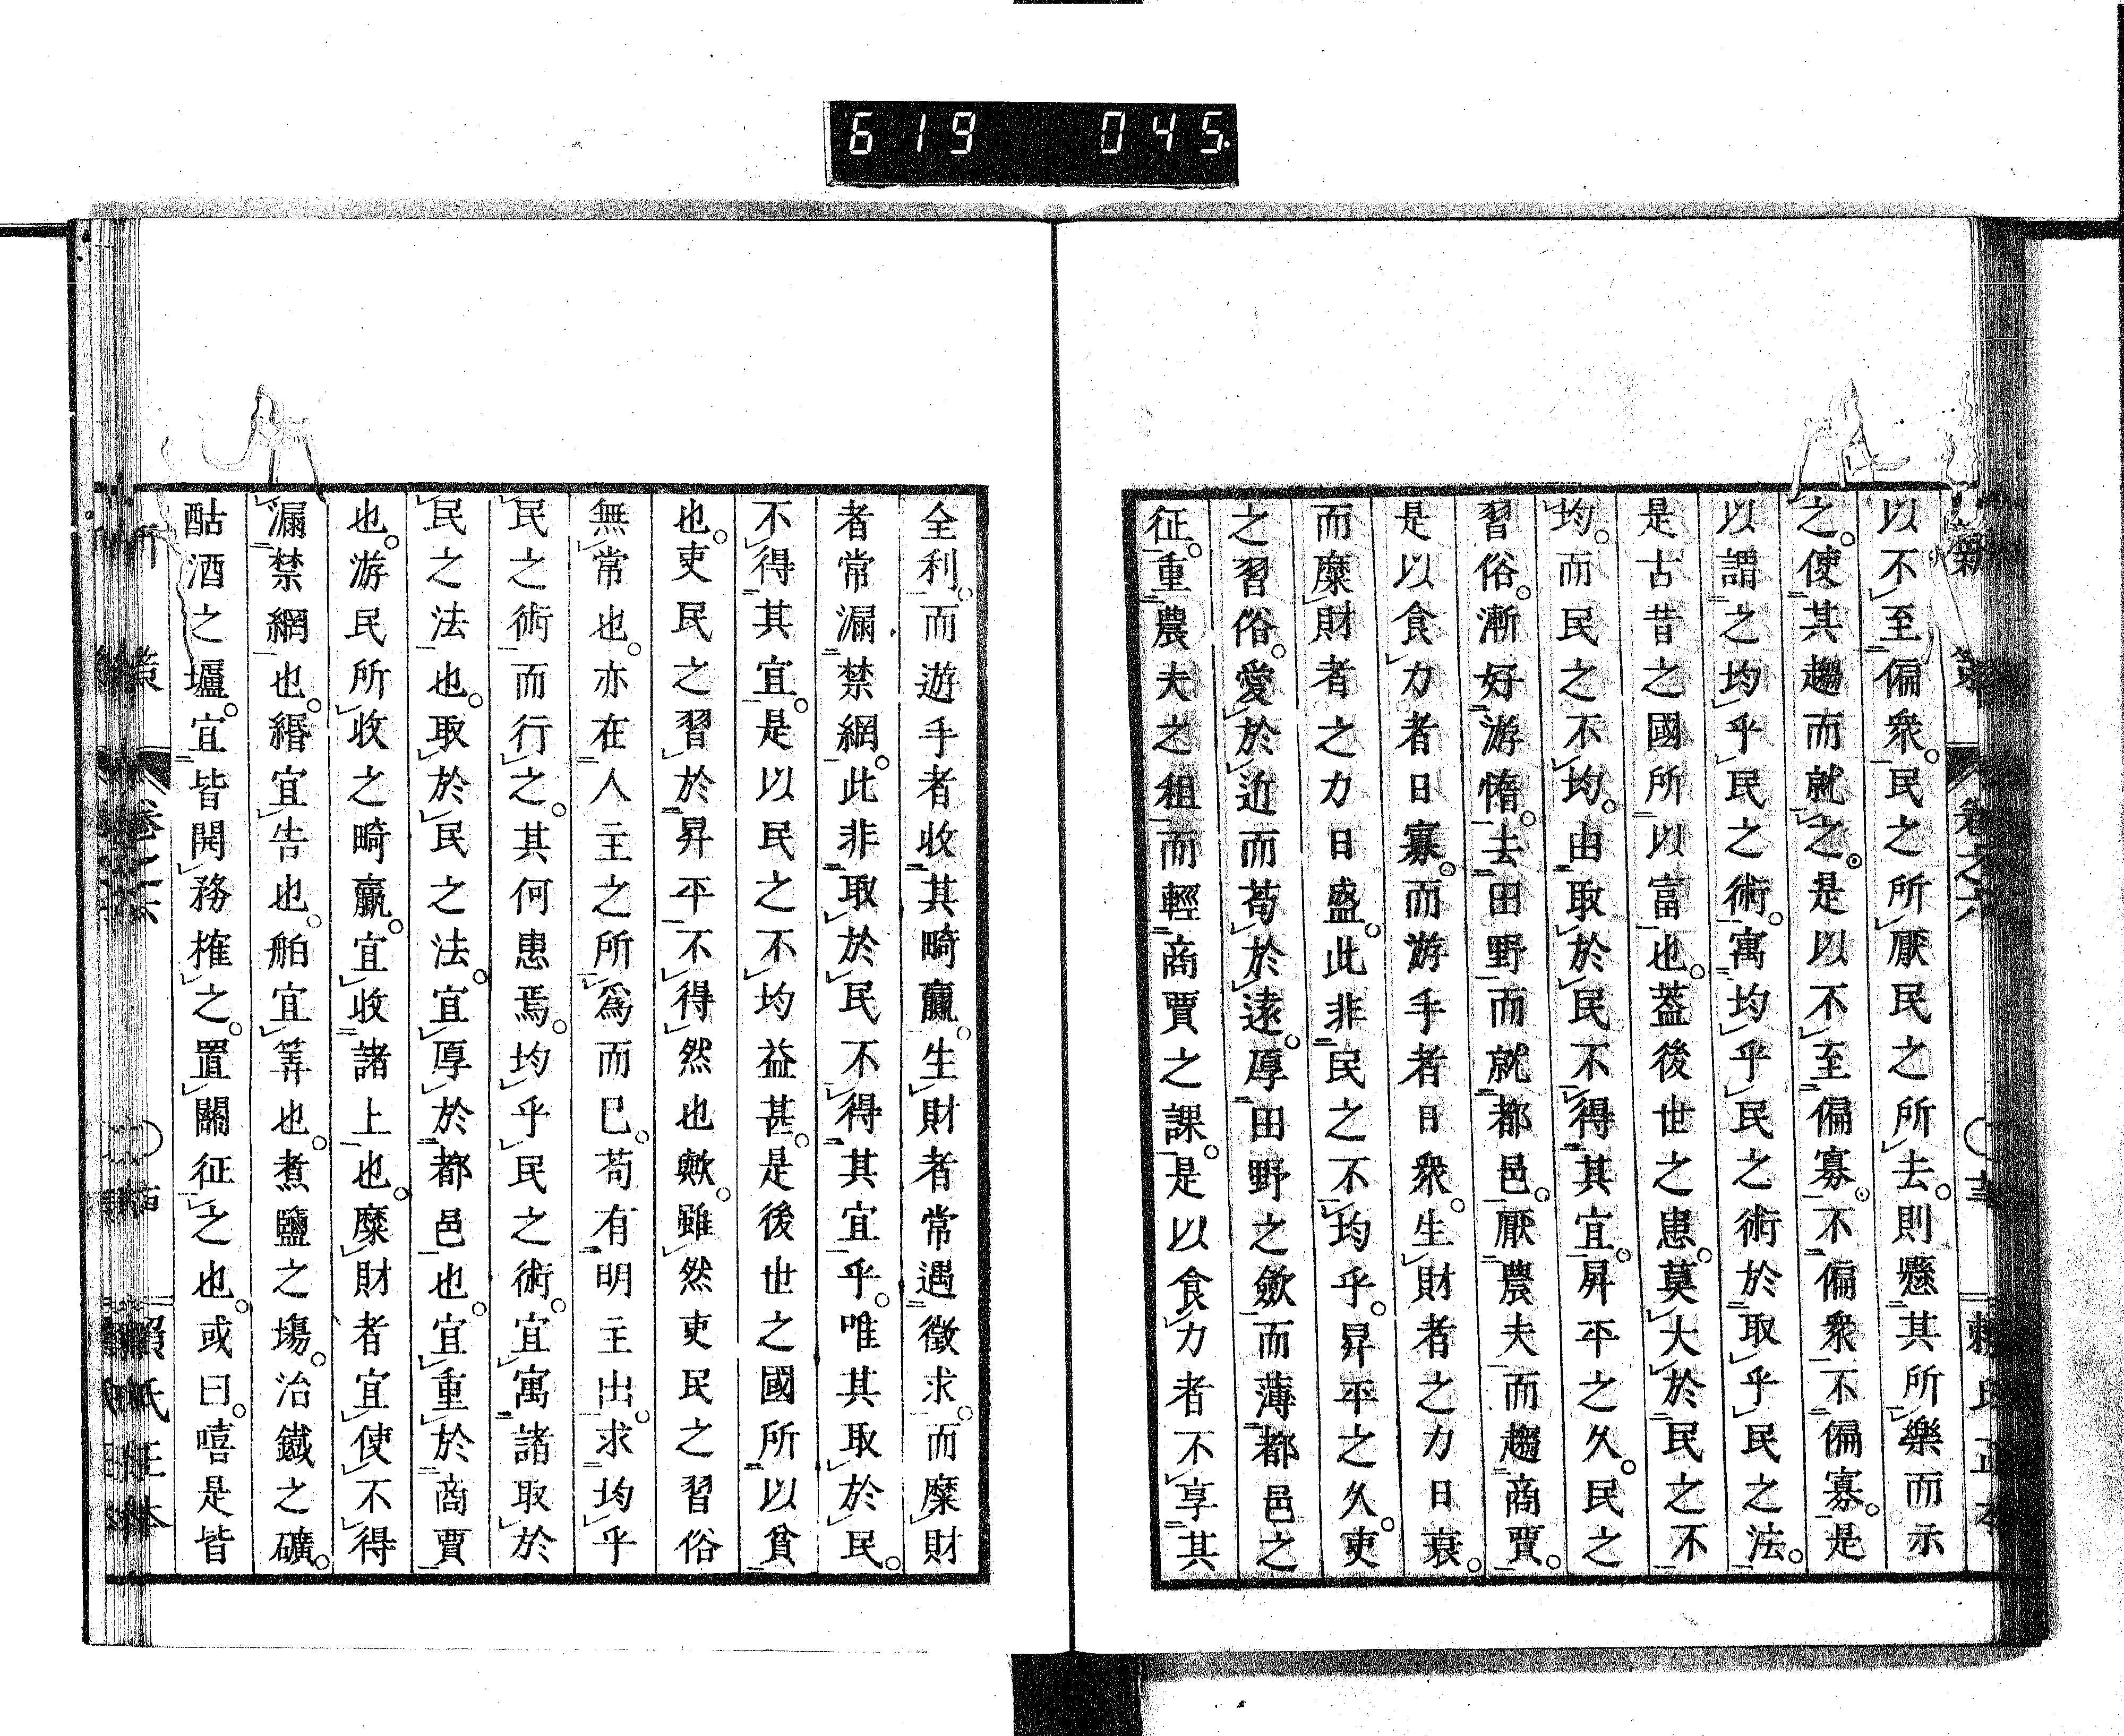 619 045.
新策 卷之六 〇 賴氏正本
以不至偏衆。民之所厭民之所去。則懸其所樂而示
之。使其趨而就之。是以不至偏寡。不偏衆不偏寡。是
以謂之均乎民之術。寓均乎民之術於取乎民之法。
是古昔之國所以富也。蓋後世之患。莫大於民之不
均。而民之不均。由取於民不得其宜。昇平之久。民之
習俗。漸好游惰。去田野而就都邑。厭農夫而趨商賈。
是以食力者日寡。而游手者日衆。生財者之力日衰。
而糜財者之力日盛。此非民之不均乎。昇平之久。吏
之習俗。愛於近而苟於遠。厚田野之歛而薄都邑之
征。重農夫之租而輕商賈之課。是以食力者不享其
全利。而遊手者收其畸贏。生財者常遇徵求。而糜財
者常漏禁網。此非取於民不得其宜乎。唯其取於民。
不得其宜。是以民之不均益甚。是後世之國所以貧
也。吏民之習於昇平不得然也歟。雖然吏民之習俗
無常也。亦在人主之所爲而已。苟有明主出。求均乎
民之術而行之。其何患焉。均乎民之術。宜寓諸取於
民之法也。取於民之法。宜厚於都邑也。宜重於商賈
也。游民所收之畸贏。宜收諸上也。糜財者宜使不得
漏禁網也。緡宜告也。舶宜筭也。煮鹽之場。冶鐵之礦。
酤酒之壚。宜皆開務榷之。置關征之也。或曰。嘻是皆
卷之六 賴氏正本